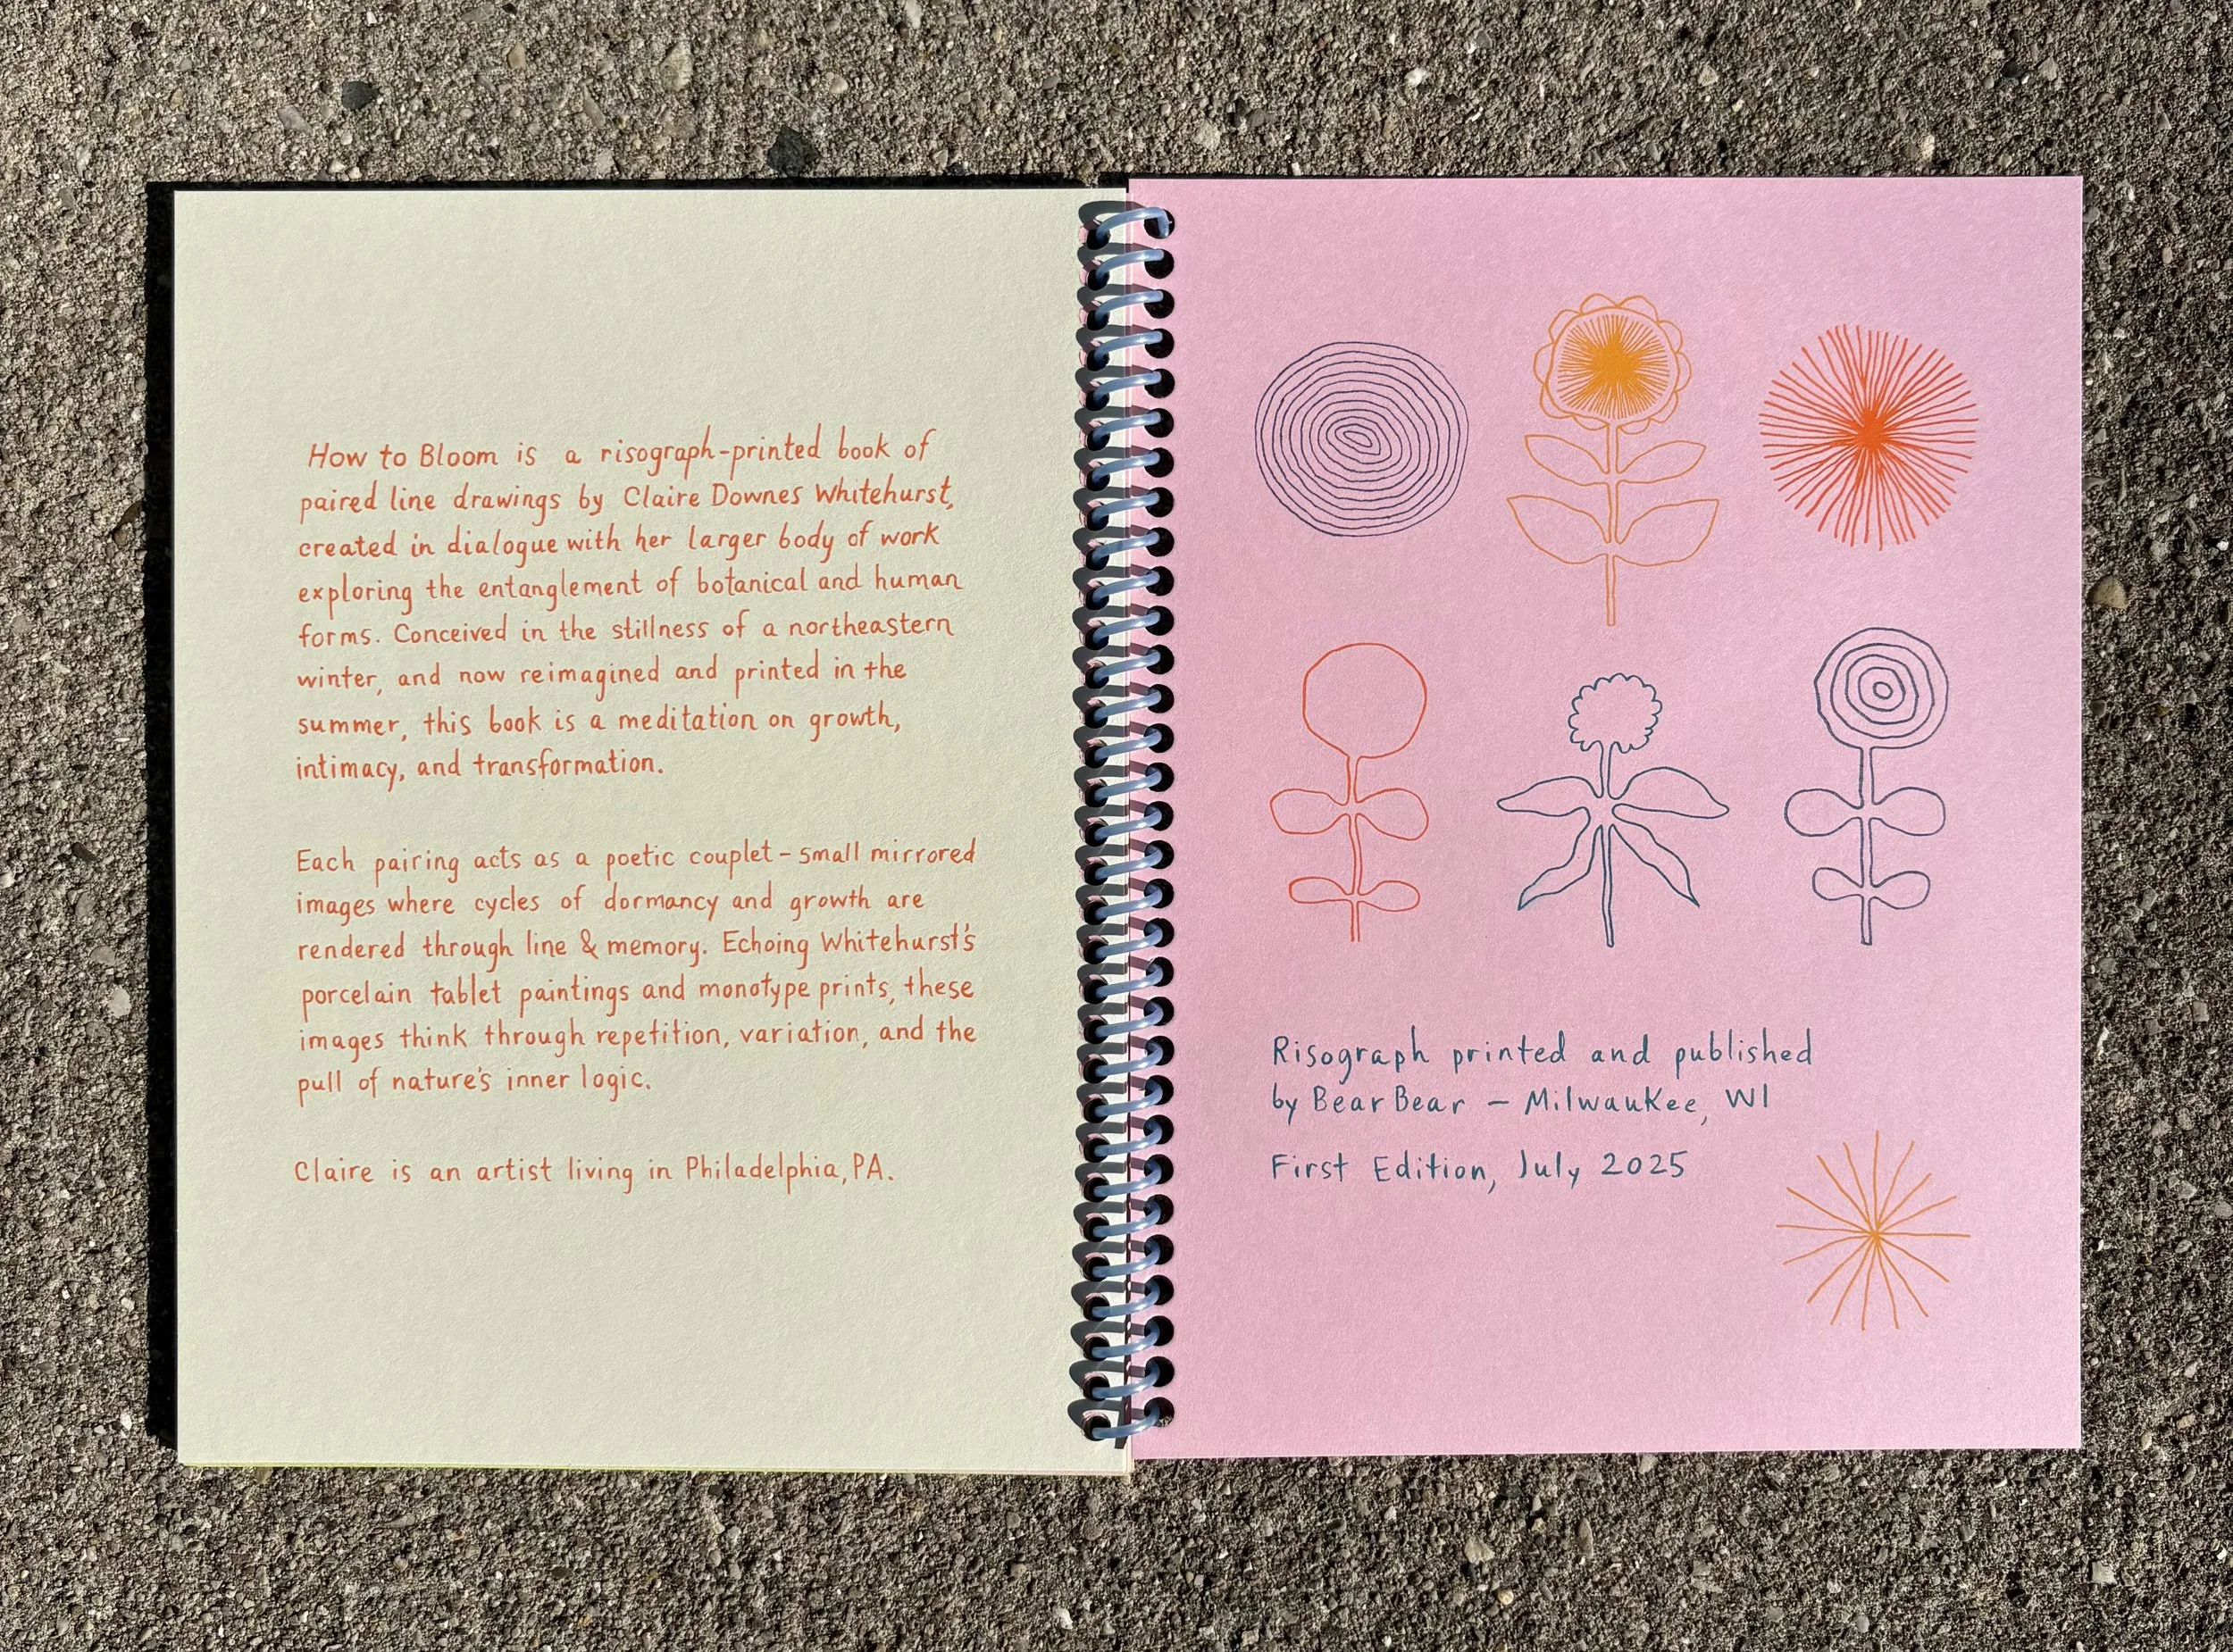 How to Bloom is a risograph-printed book of
paired line drawings by Claire Downes Whitehurst,
created in dialogue with her larger body of work
exploring the entanglement of botanical and human
forms. Conceived in the stillness of a northeastern
winter, and now reimagined and printed in the
summer, this book is a meditation on growth,
intimacy, and transformation.
Each pairing acts as a poetic couplet - small mirrored
images where cycles of dormancy and growth are
rendered through line & memory. Echoing Whitehurst's
porcelain tablet paintings and monotype prints, these
images think through repetition, variation, and the
pull of nature's inner logic.
Claire is an artist living in Philadelphia, PA.
Risograph printed and published
by Bear Bear – Milwaukee, WI
First Edition, July 2025